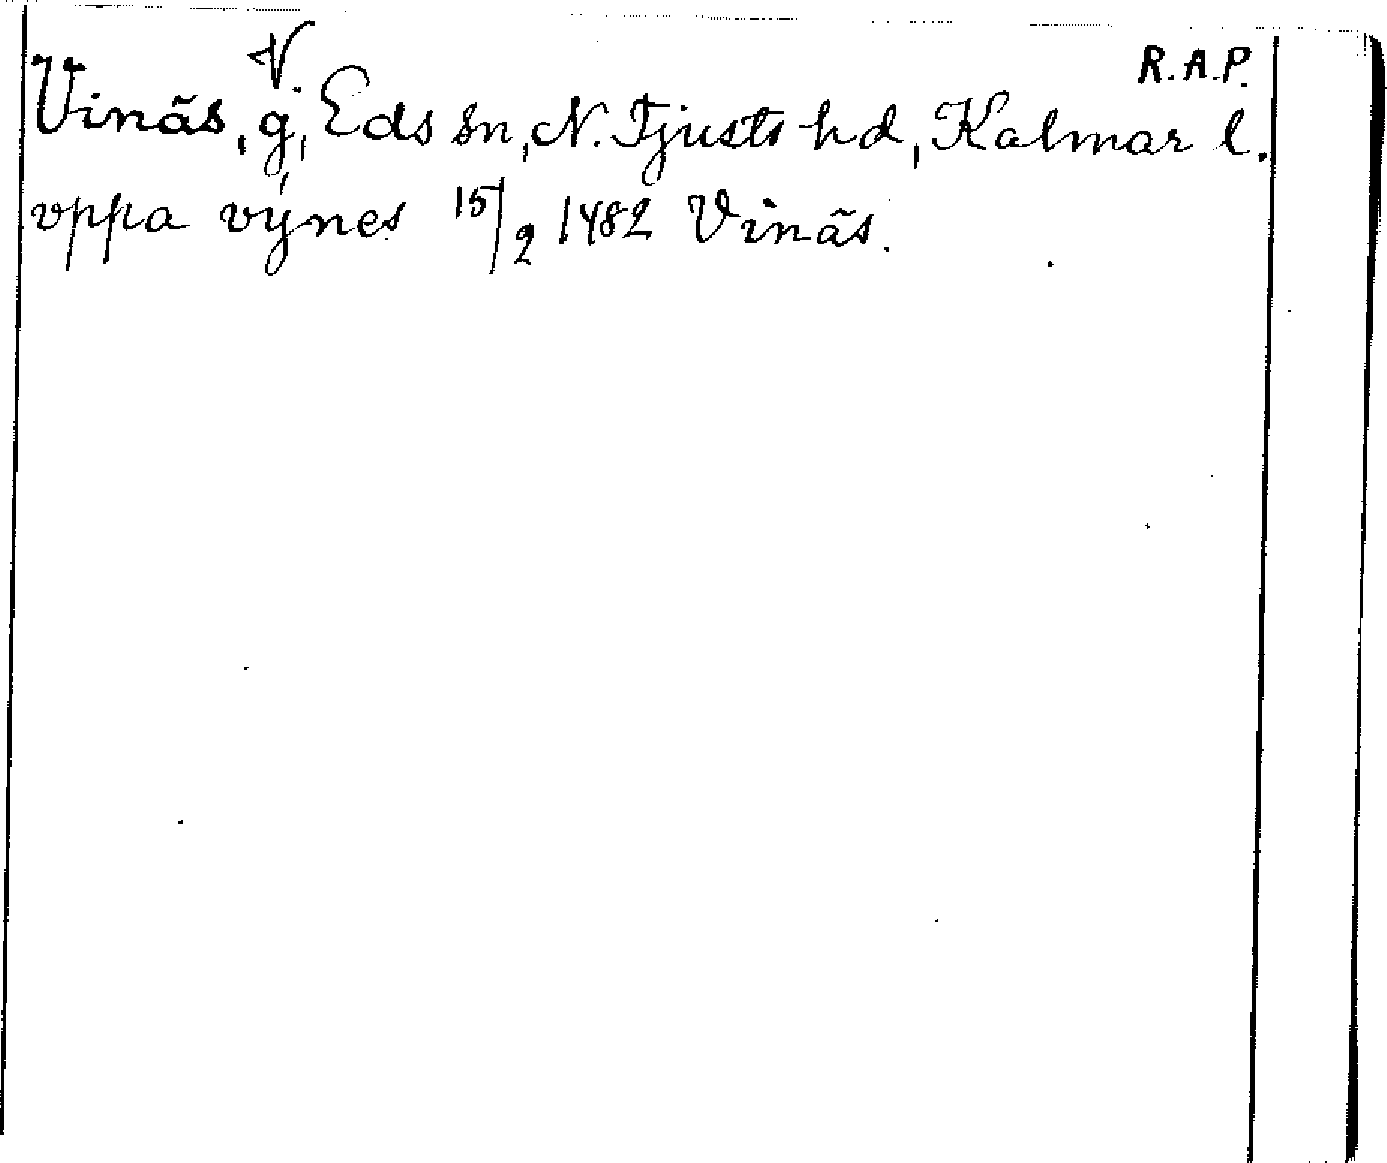 V R.A.P.
Vinäs, g, Eds sn, N. Tjusts hd, Kalmar l.
vppa výnes 15/2 1482 Vinäs.